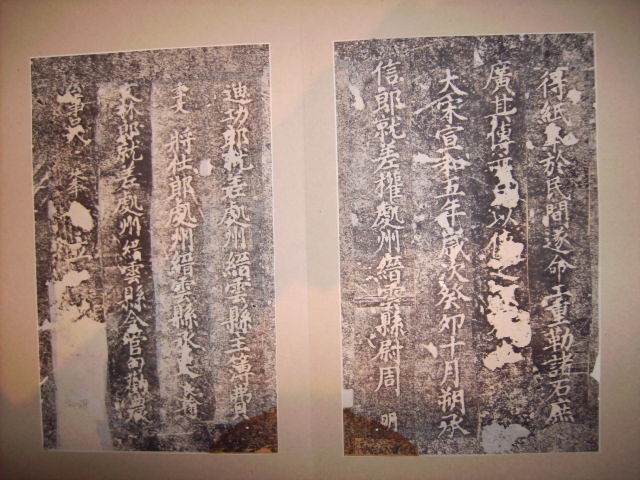 得紙本於民間遂命工重勒諸石庶
廣其傳
大宋宣和五年歲次癸卯十月朔承
信郎就差權處州縉雲縣尉周 明
迪功郎就差處州縉雲縣主簿費
將仕郎處州縉雲縣丞
文林郎就差處州縉雲縣令管勾勸農